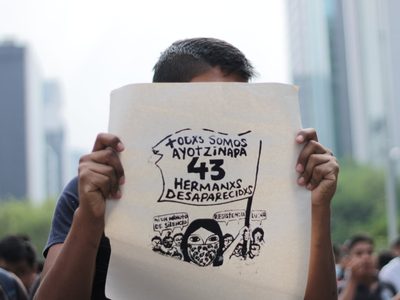 +ODXS SOMOS
AYOTZINAPA
43
HERMANXS
DESAPARECIDXS
NI UN MINUTO
DE SILENCIO
RESISTENCIA